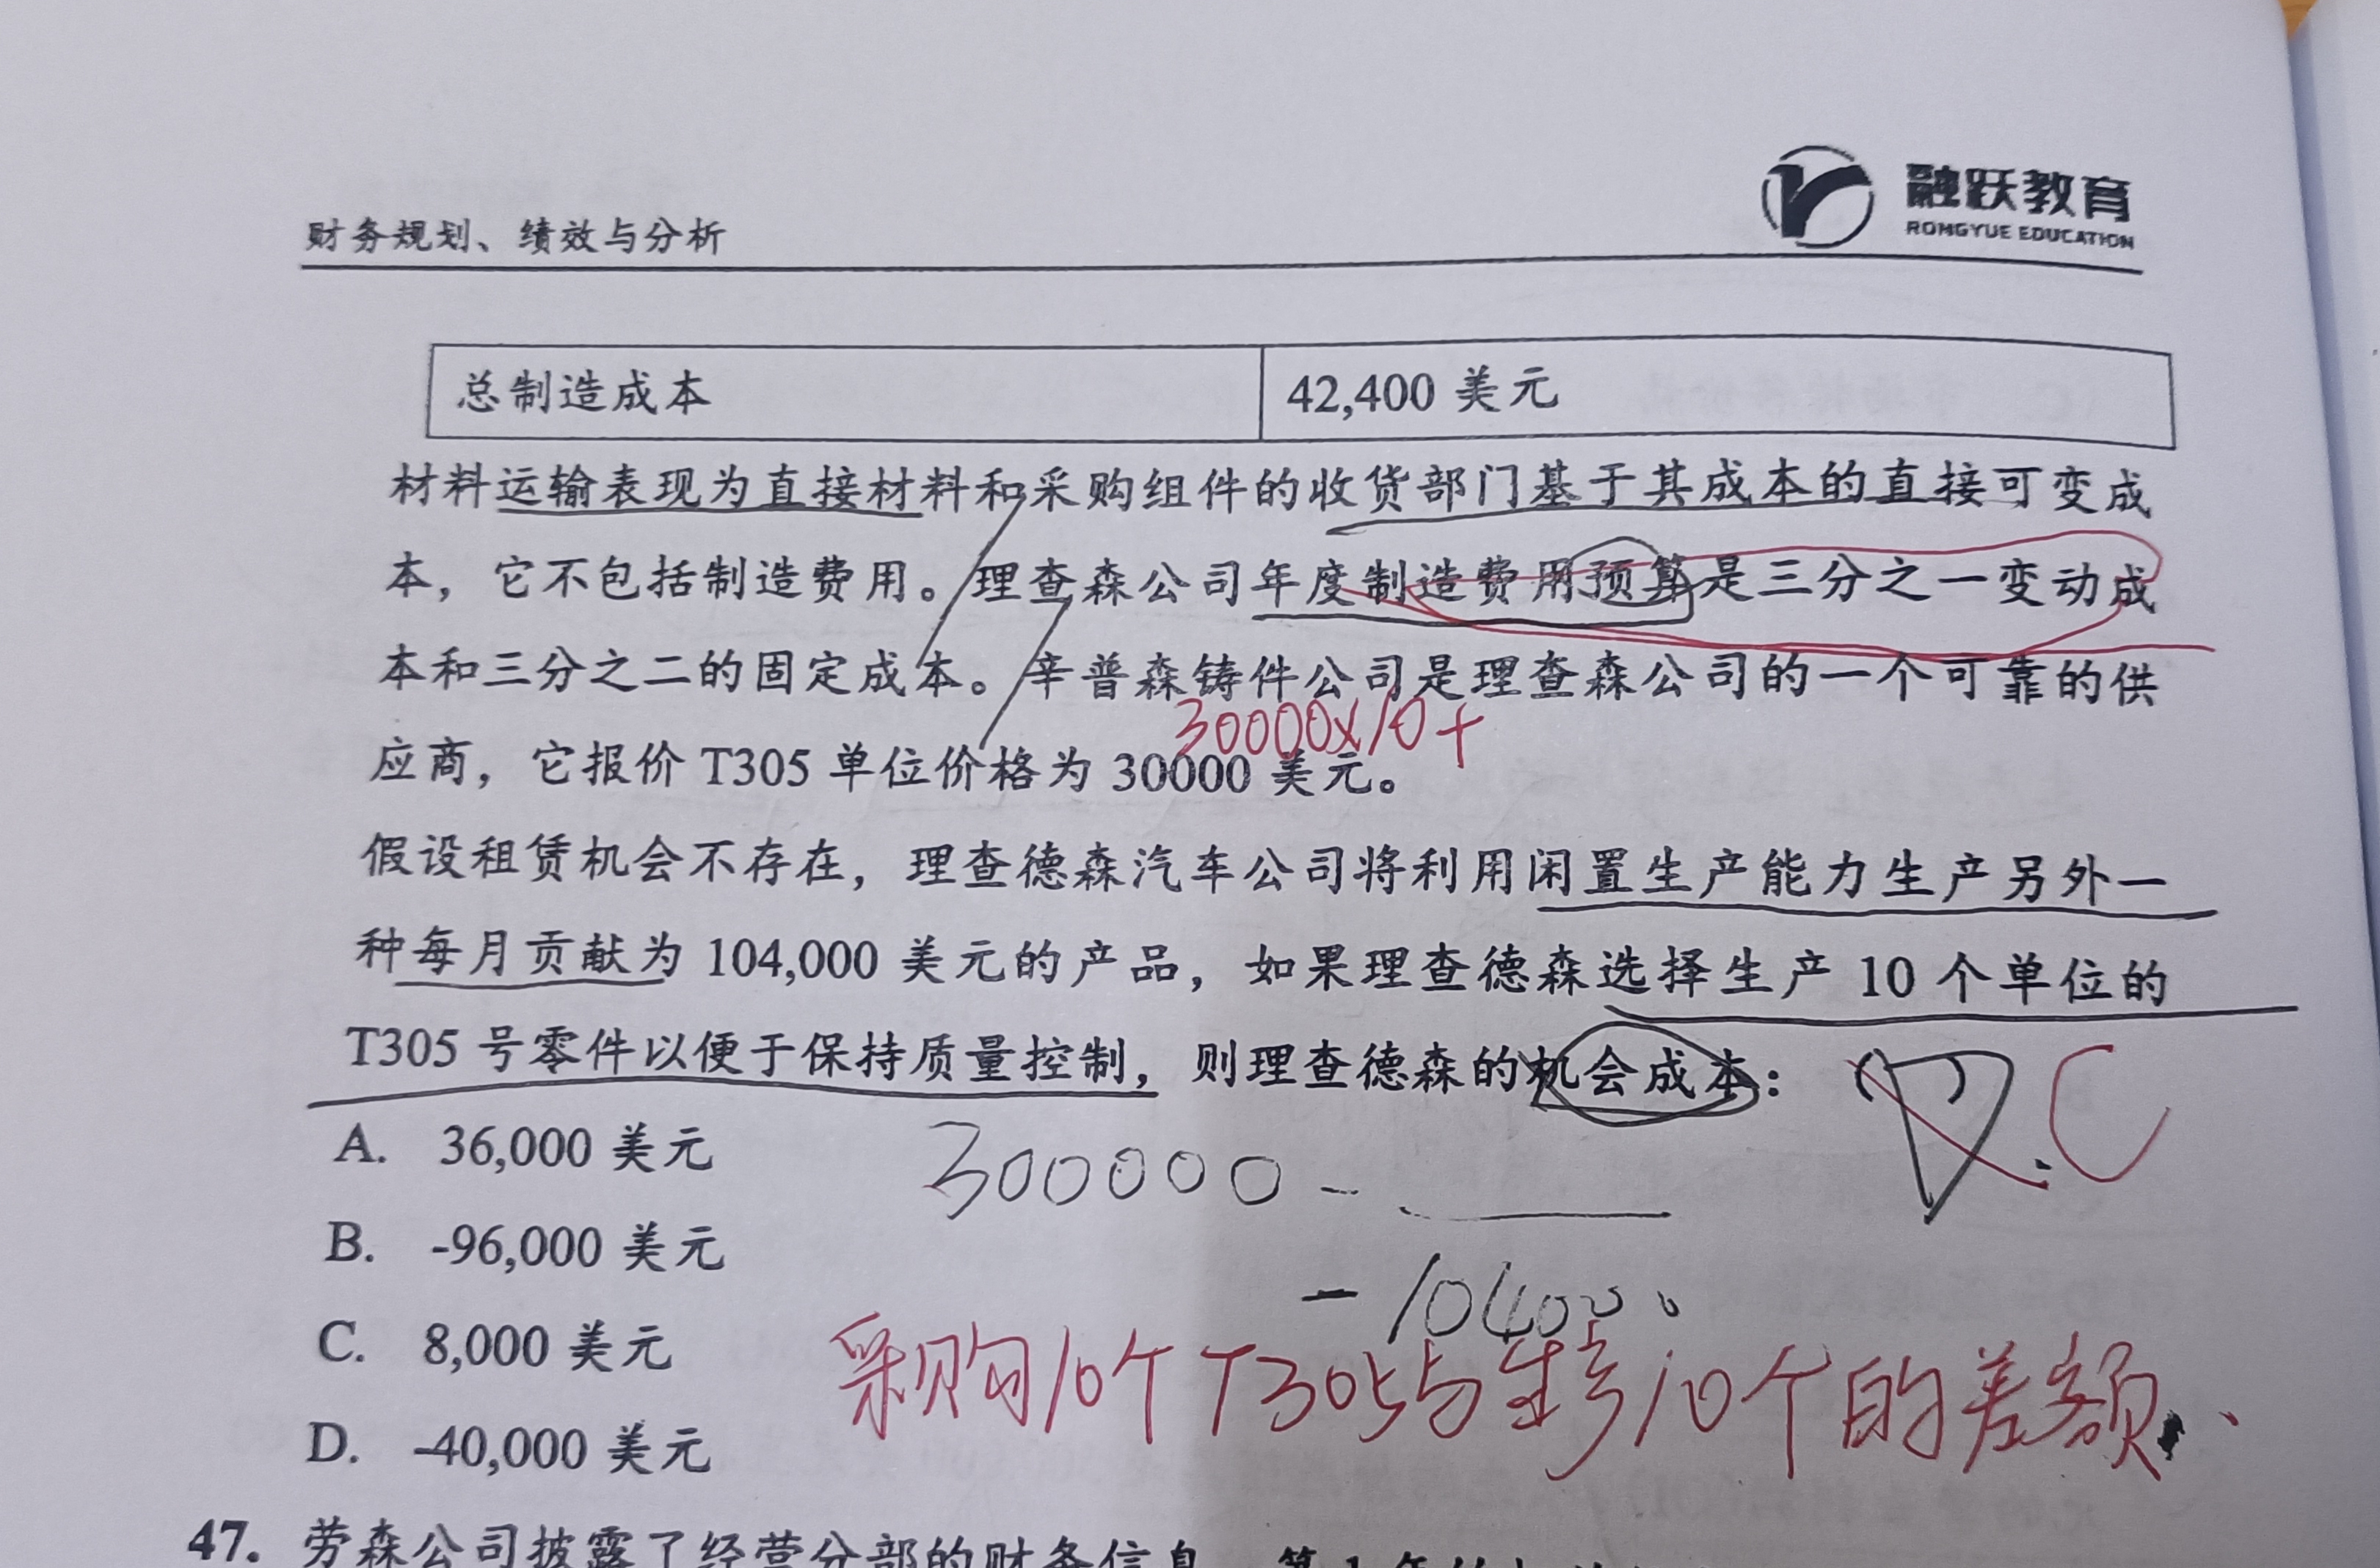 融跃教育
RONGYUE EDUCATION
财务规划、绩效与分析
总制造成本 42,400 美元
材料运输表现为直接材料和采购组件的收货部门基于其成本的直接可变成
本，它不包括制造费用。理查森公司年度制造费用预算是三分之一变动成
本和三分之二的固定成本。辛普森铸件公司是理查森公司的一个可靠的供
30000×10+
应商，它报价 T305 单位价格为 30000 美元。
假设租赁机会不存在，理查德森汽车公司将利用闲置生产能力生产另外一
种每月贡献为 104,000 美元的产品，如果理查德森选择生产 10 个单位的
T305 号零件以便于保持质量控制，则理查德森的机会成本：（ ） D. C
A. 36,000 美元
300000 -
B. -96,000 美元
- 104000
C. 8,000 美元
采购10个T305与生产10个的差额.
D. -40,000 美元
47. 劳森公司披露了经营分部的财务信息